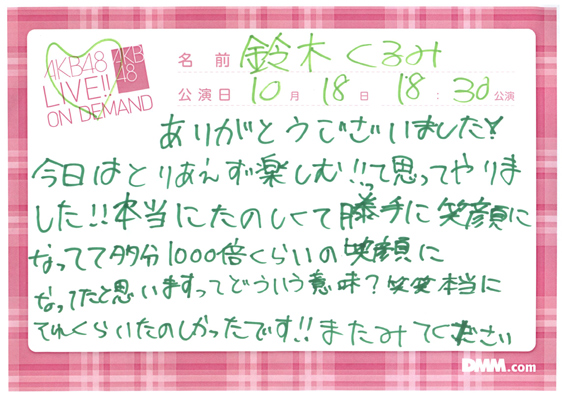 AKB48
LIVE!!
ON DEMAND
AKB
48
名前 鈴木くるみ
公演日 10月18日 18:30公演
ありがとうございました!
今日はとりあえず楽しむ!!って思ってやりま
した!!本当にたのしくて勝手に笑顔に
なってて多分1000倍くらいの笑顔に
なってたと思いますってどういう意味?笑笑本当に
それくらいたのしかったです!!またみてください
DMM.com